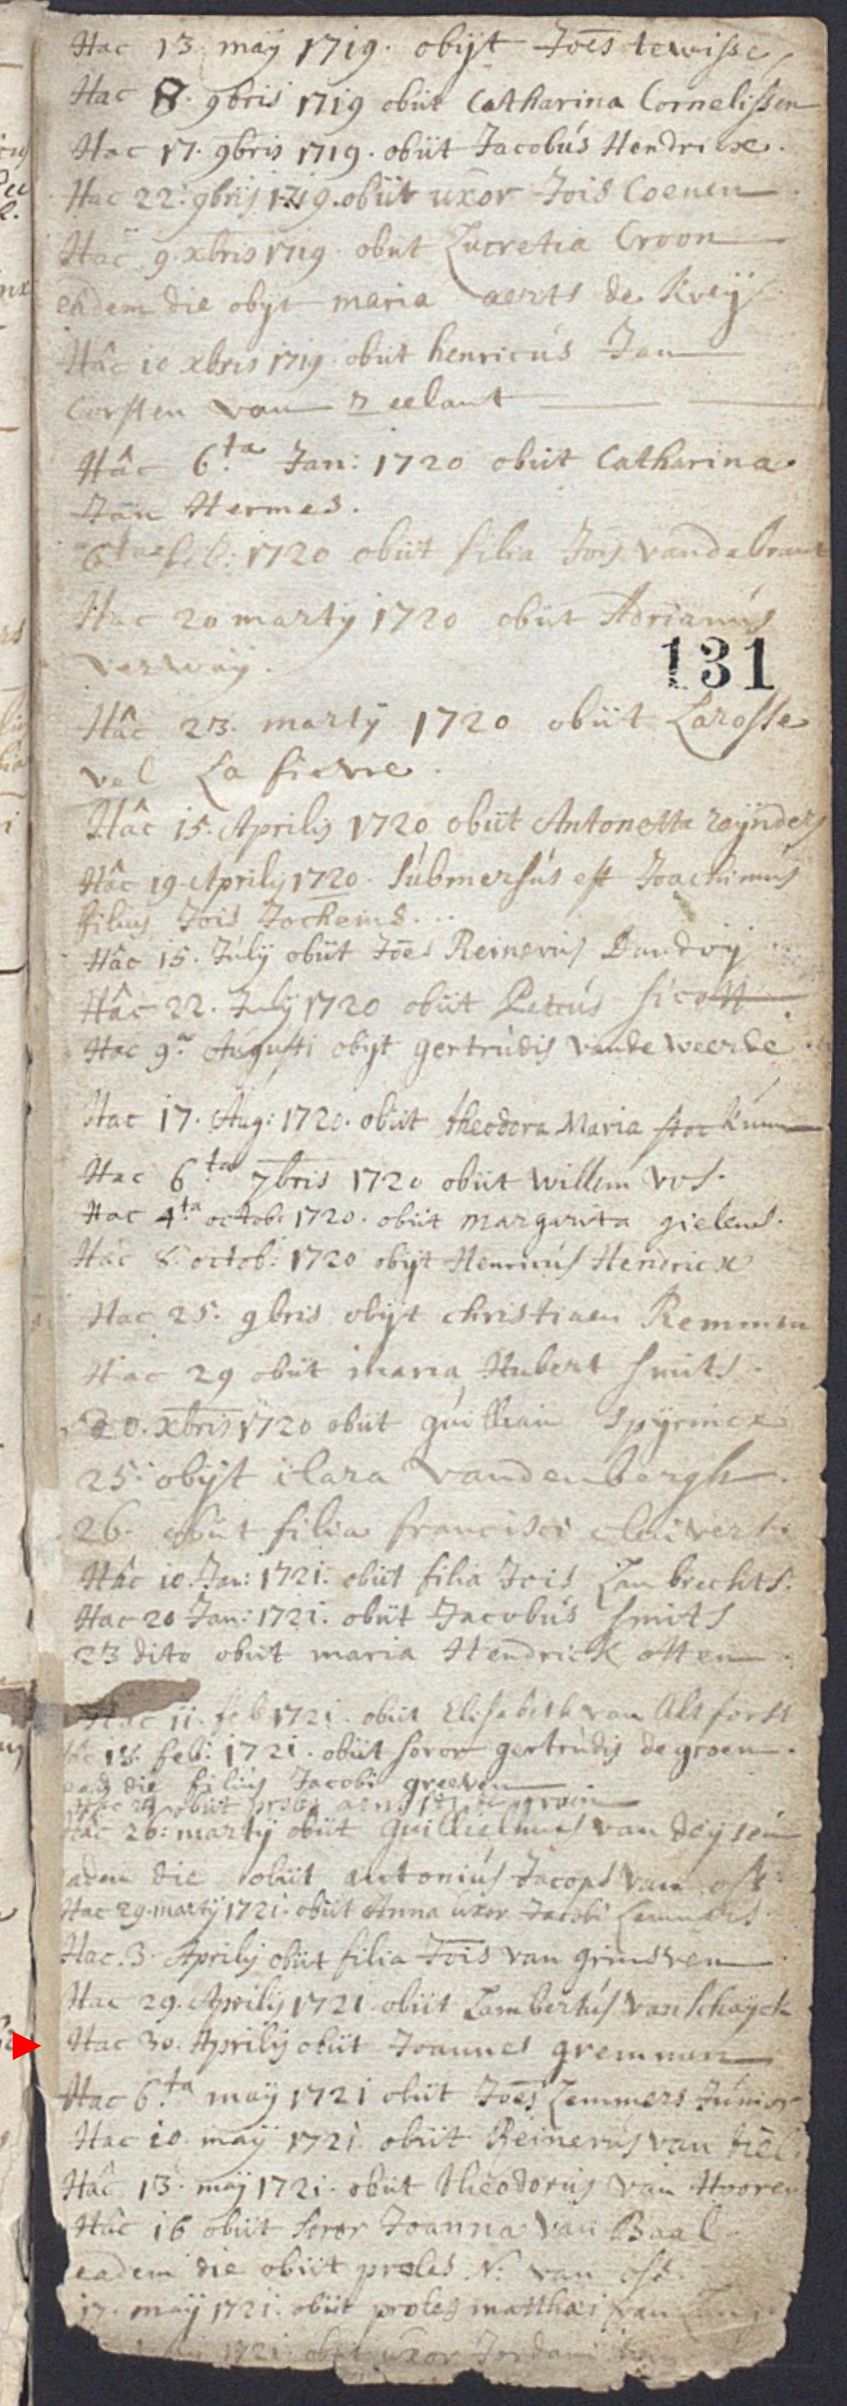 Hac 13 maÿ 1719. obijt Joēs tewisse
Hac 8. 9bris 1719 obiit Catharina Cornelissen
Hac 17. 9bris 1719. obiit Jacobús Hendricx.
Hac 22. 9bris 1719. obiit uxor Jois Coenen
Hac 9. xbris 1719 obiit Lucretia Croon
eadem die obijt maria aerts de Kreÿ
Hâc 10 xbris 1719 obiit henricús Jan
Corsten van zeelant
Hâc 6.ta Jan: 1720 obiit Catharina
Jan Hermes.
6tae feb: 1720 obiit filia Jois vande brant
Hac 20 martÿ 1720 obiit Adrianús
verwaÿ.
131
Hâc 23. martÿ 1720 obiit Larosse
vel La fievre.
Hâc 15. Aprilis 1720 obiit Antonetta raÿnders
Hâc 19. Aprilij 1720. súbmersús est Joachimús
filius Jois Jochems...
Hâc 15. Júlÿ obiit Joēs Reinerus
Hâc 22. Julÿ 1720 obiit Petrús
Hac 9a Augusti obijt gertrúdis vande weerde
Hac 17. Aug: 1720. obiit theodora Maria stockum
Hac 6.ta 7bris 1720 obiit willem vos.
Hac 4.ta octob: 1720. obiit margarita gielens.
Hac 8. octob: 1720 obijt Henricús Hendricx
Hac 25. 9bris obijt christiaen Remmen
Hac 29 obiit maria Hubert smits.
20. xbris 1720 obiit guilliam Spÿrincx
25. obijt clara vandenbergh.
26. obiit filia francisci cluivers.
Hâc 10. Jan: 1721. obiit filia Jois Lambrechts.
Hac 20 Jan: 1721. obiit Jacobús smits
23 dito obiit maria Hendrick otten
Hac 11. feb 1721. obiit Elisabeth van Altforst
hâc 18. feb: 1721. obiit soror gertrúdis de groen.
ead die filiús Jacobi greeven
Hac 24 obiit proles
Hac 26. martÿ obiit guilielmus van deÿsen
eadem die obiit antoniús Jacops van oss.
Hac 29. martÿ 1721. obiit Anna uxor Jacobi Lemmers.
Hac. 3. Aprilÿ obiit filia Jois van grinsven
Hac 29. Aprilij 1721 obiit Lambertús van schaÿck
Hac 30. Aprilij obiit Joannes gremmen
Hac 6.ta maÿ 1721 obiit Joēs Lemmers Júnior
Hac 10. maÿ 1721. obiit Reinerús van tiel.
Hâc 13. maÿ 1721. obiit theodorús van Hooren
Hâc 16 obiit soror Joanna van Baal
eadem die obiit proles N: van oss.
17. maÿ 1721. obiit proles matthæi van
1721. obiit uxor Jordani